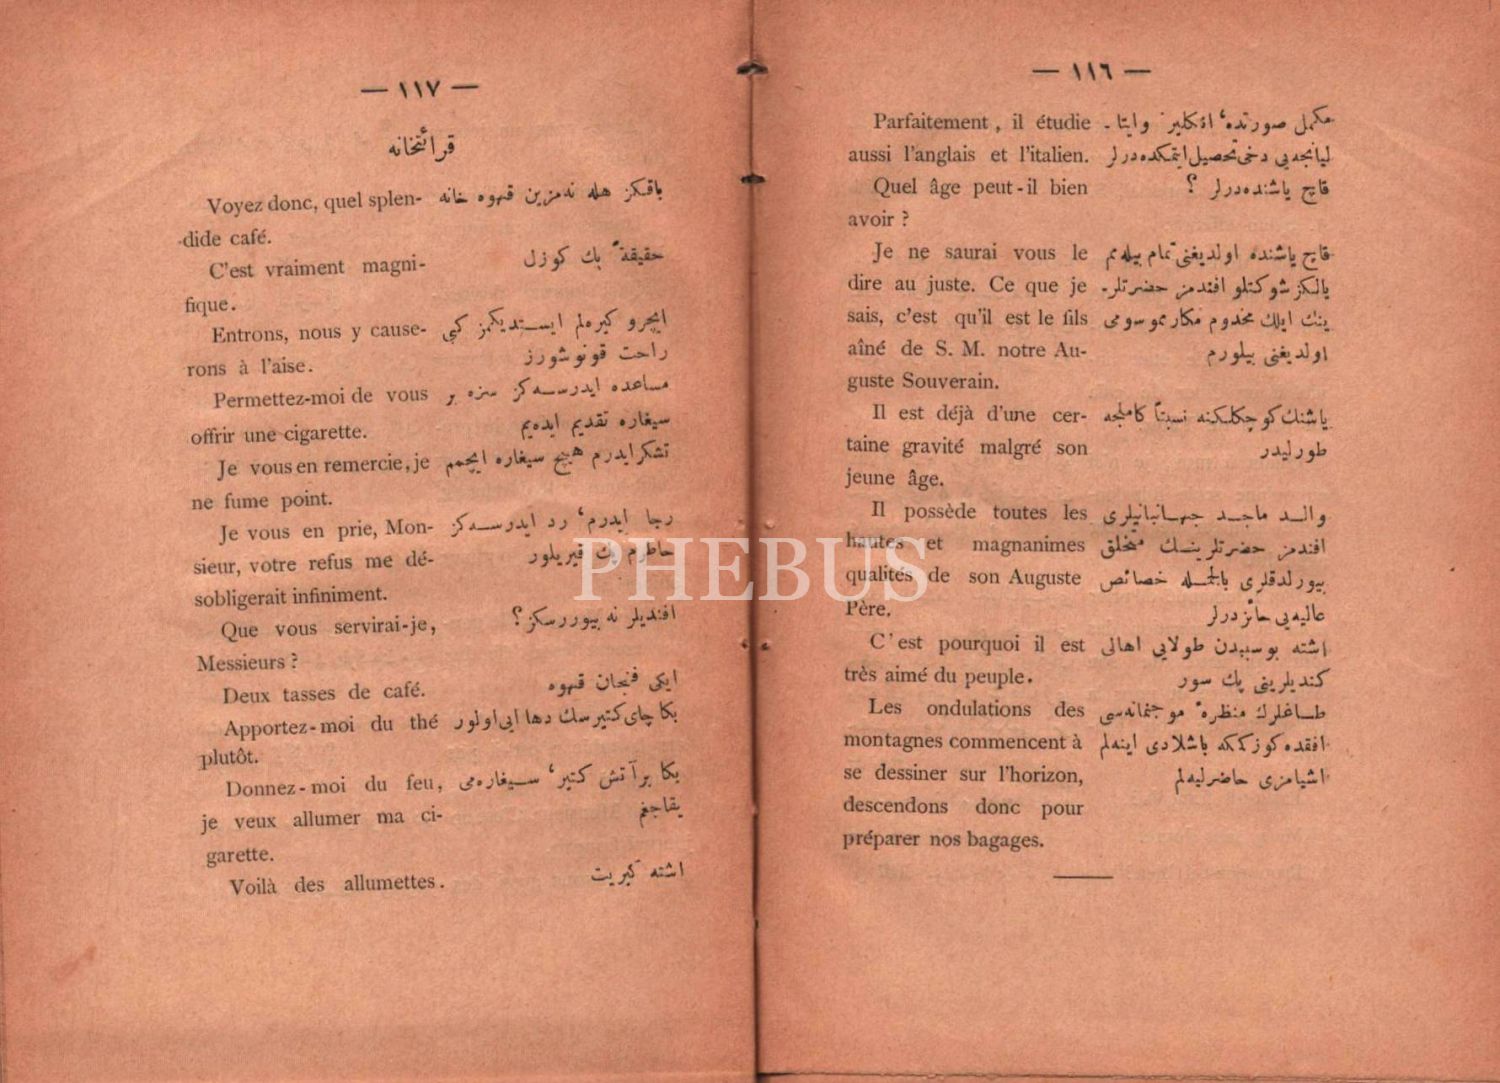 — ١١٦ —
Parfaitement, il étudie
aussi l'anglais et l'italien.
Quel âge peut-il bien
avoir ?
Je ne saurai vous le
dire au juste. Ce que je
sais, c'est qu'il est le fils
aîné de S. M. notre Au-
guste Souverain.
Il est déjà d'une cer-
taine gravité malgré son
jeune âge.
Il possède toutes les
hautes et magnanimes
qualités de son Auguste
Père.
C'est pourquoi il est
très aimé du peuple.
Les ondulations des
montagnes commencent à
se dessiner sur l'horizon,
descendons donc pour
préparer nos bagages.
مكمل صورتده، انكليز وايتا-
ليانجه‌يى دخى تحصيل ايتمكده‌درلر
قاچ ياشنده‌درلر ؟
قاچ ياشنده اولديغنى تمام بيله‌مم
يالكز شوكتلو افندمز حضرتلر-
ينك ايلك مخدوم مكارمموسومى
اولديغنى بيلورم
ياشنك كوچكلكنه نسبتاً كاملجه
طورليدر
والد ماجد جهانبانيلرى
افندمز حضرتلرينك متخلق
بيورلدقلرى بالجمله خصائص
عاليه‌يى حائزدرلر
اشته بوسببدن طولايى اهالى
كنديلرينى پك سور
طاغلرك منظرهٔ موجنمانه‌سى
افقده كوزككه باشلادى اينه‌لم
اشيامزى حاضرليه‌لم
— ١١٧ —
قرائتخانه
Voyez donc, quel splen-
dide café.
C'est vraiment magni-
fique.
Entrons, nous y cause-
rons à l'aise.
Permettez-moi de vous
offrir une cigarette.
Je vous en remercie, je
ne fume point.
Je vous en prie, Mon-
sieur, votre refus me dé-
sobligerait infiniment.
Que vous servirai-je,
Messieurs ?
Deux tasses de café.
Apportez-moi du thé
plutôt.
Donnez-moi du feu,
je veux allumer ma ci-
garette.
Voilà des allumettes.
باقكز هله نه‌مزين قهوه خانه
حقيقةً پك كوزل
ايچرو كيره‌لم ايستديكمز كبى
راحت قونوشورز
مساعده ايدرسه‌كز سزه بر
سيغاره تقديم ايده‌يم
تشكرايدرم هيچ سيغاره ايچمم
رجا ايدرم، رد ايدرسه‌كز
خاطرم پك قيريلور
افنديلر نه بيوررسكز؟
ايكى فنجان قهوه
بكا چاى كتيرسك دها ايى اولور
بكا برآتش كتير، سيغاره‌مى
يقاجغم
اشته كبريت
PHEBUS